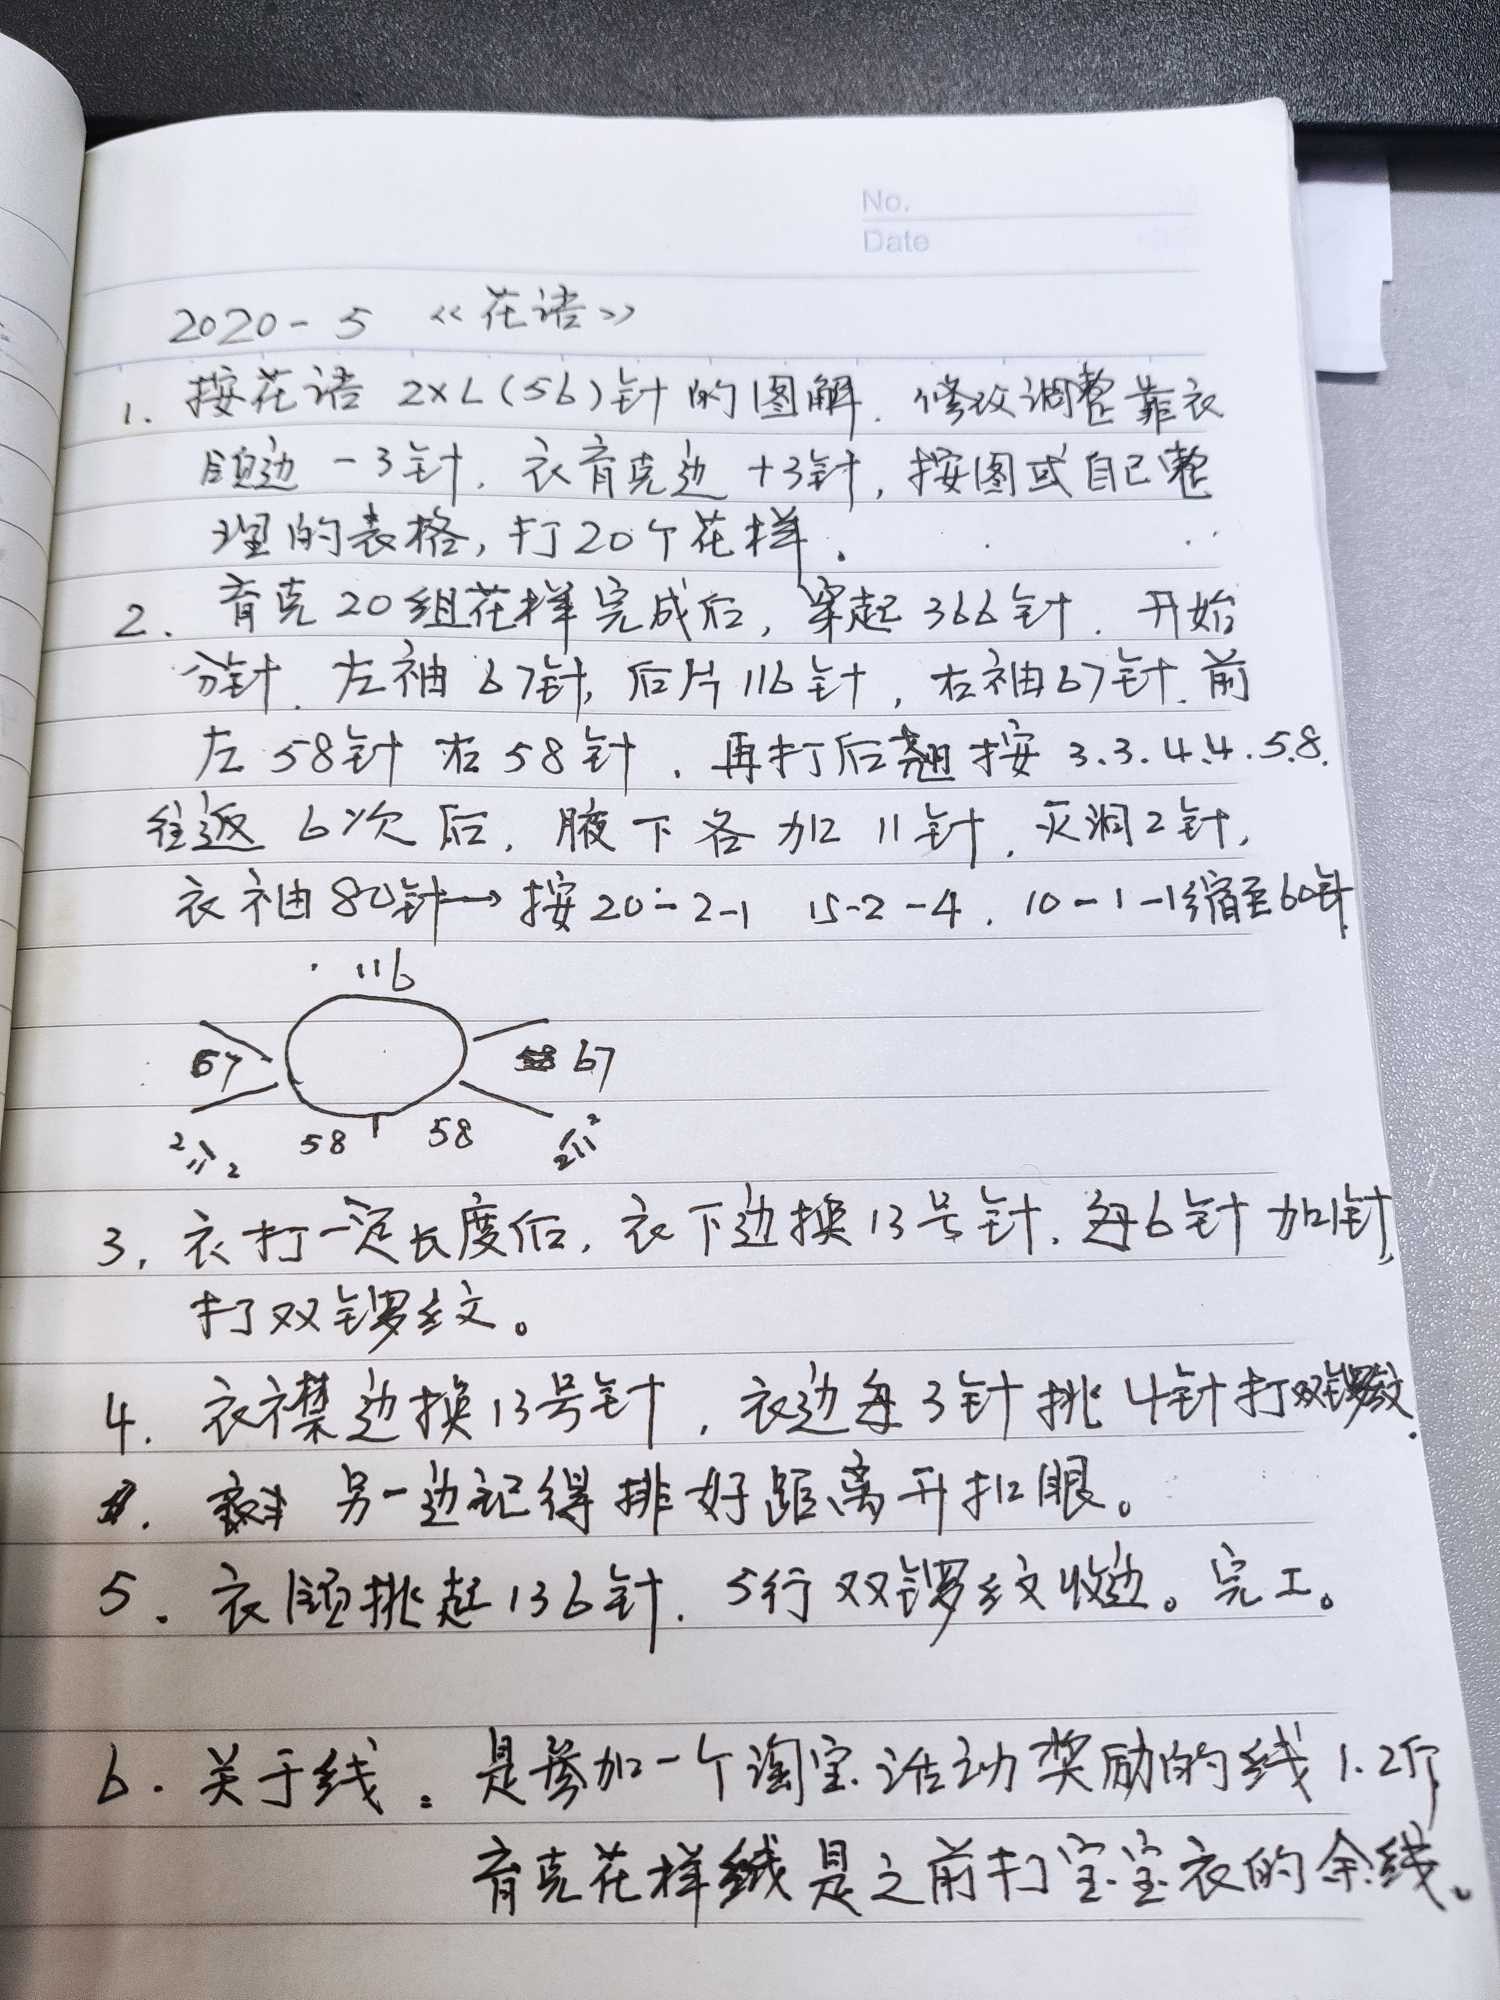 No.
Date
2020-5 《花语》
1. 按花语 2XL(56)针的图解.修改调整靠衣
领边 -3针.衣育克边 +3针,按图或自己整
理的表格,打20个花样.
2. 育克20组花样完成后,穿起366针.开始
分针.左袖67针,后片116针,右袖67针.前
左58针 右58针.再打后翘按3.3.4.4.5.8.
往返6次后.腋下各加11针.灭洞2针,
衣袖80针→按20-2-1 15-2-4.10-1-1缩至60针.
116
67
67
58
58
2 11 2
2 11 2
3. 衣打一定长度后,衣下边换13号针.每6针加1针,
打双锣纹。
4. 衣襟边换13号针,衣边每3针挑4针打双锣纹.
另一边记得排好距离开扣眼。
5. 衣领挑起136针.5行双锣纹收边。完工。
6. 关于线。是参加一个淘宝活动奖励的线1.2斤
育克花样绒是之前打宝宝衣的余线。